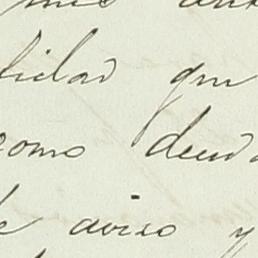 mis
lidad que
como deud
de aviso y